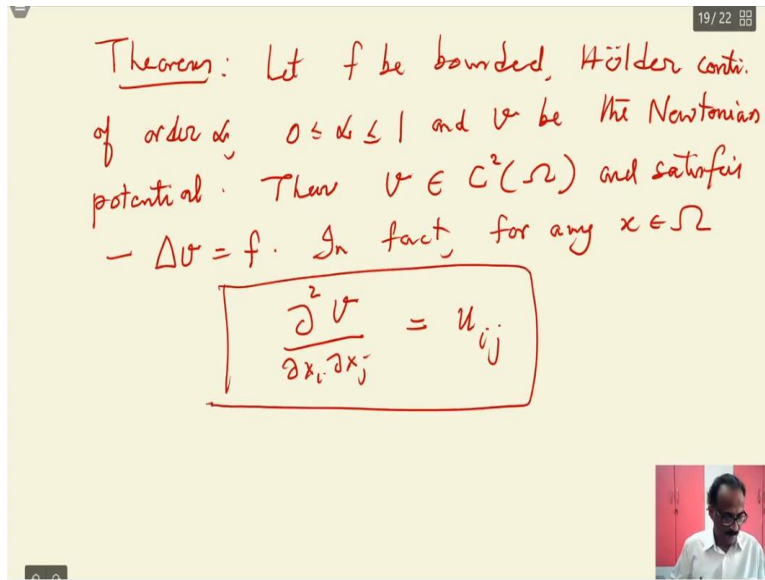 19/22
Theorem: Let f be bounded, Hölder conti.
of order α, 0 ≤ α ≤ 1 and v be the Newtonian
potential. Then v ∈ C²(Ω) and satisfies
- Δv = f. In fact, for any x ∈ Ω
∂²v / ∂xᵢ ∂xⱼ = uᵢⱼ